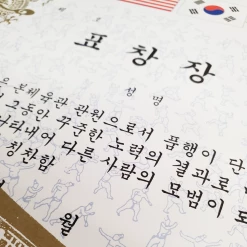 표 창 장
성 명
은 본체육관 관원으로서 품행이 단
그동안 꾸준한 노력의 결과로
타내어 다른 사람의 모범이 되
칭찬함
월